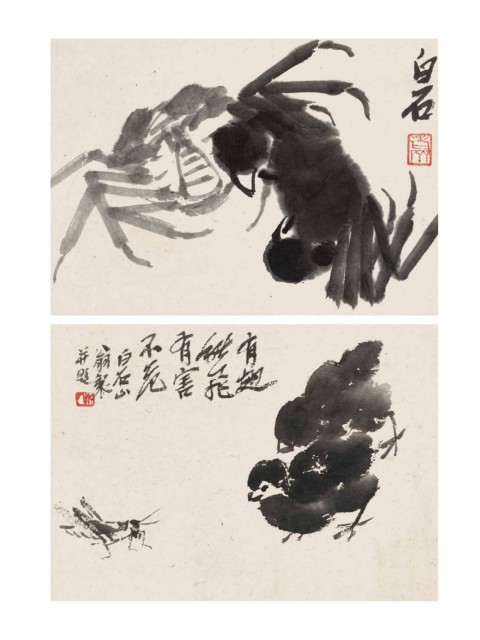 白石
有翅
能飛
有害
不免
白石山
翁製
并題